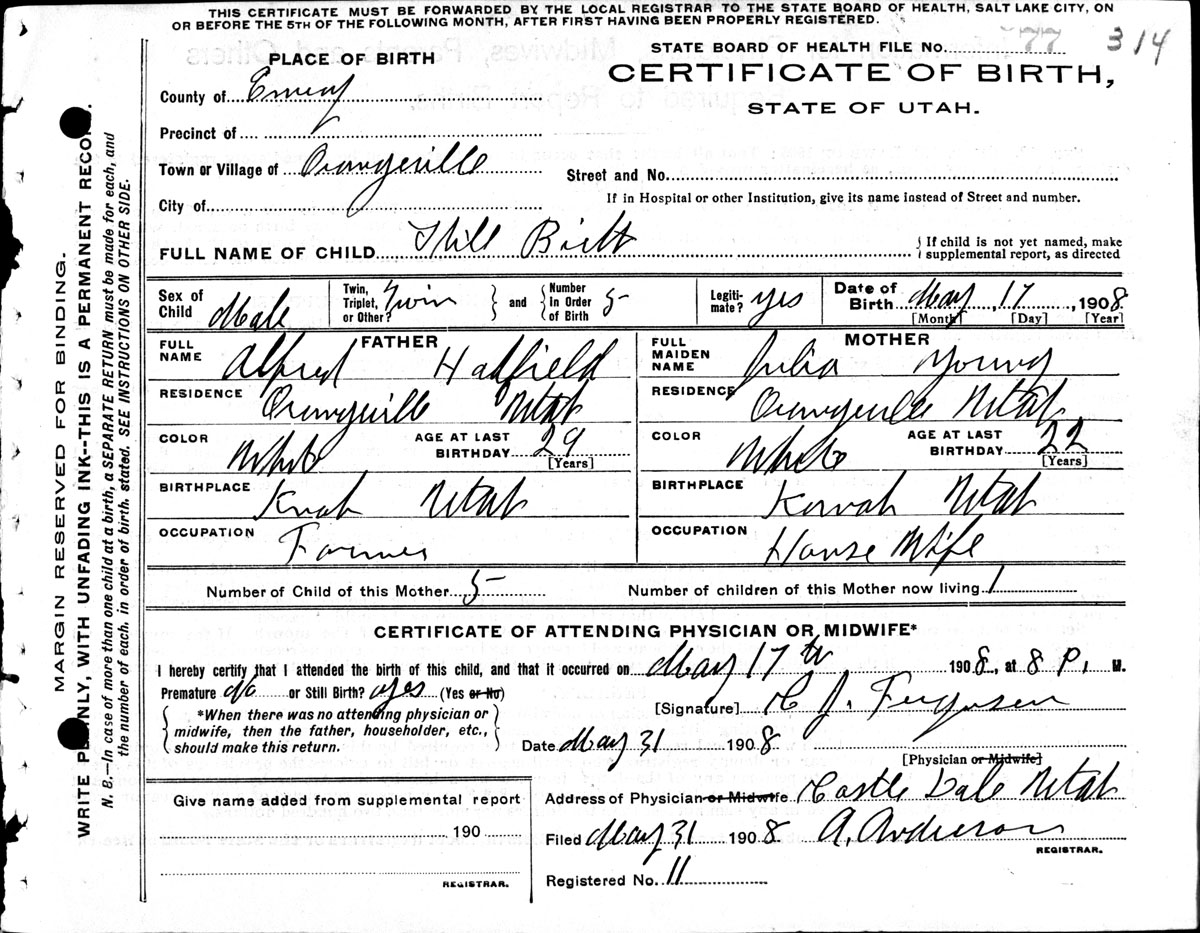 THIS CERTIFICATE MUST BE FORWARDED BY THE LOCAL REGISTRAR TO THE STATE BOARD OF HEALTH, SALT LAKE CITY, ON
OR BEFORE THE 5TH OF THE FOLLOWING MONTH, AFTER FIRST HAVING BEEN PROPERLY REGISTERED.
STATE BOARD OF HEALTH FILE No. 77 314
PLACE OF BIRTH
CERTIFICATE OF BIRTH,
STATE OF UTAH.
County of Emery
Precinct of
Town or Village of Orangeville
Street and No.
City of
If in Hospital or other Institution, give its name instead of Street and number.
FULL NAME OF CHILD Still Birth
If child is not yet named, make
supplemental report, as directed
Sex of Child Male
Twin, Triplet, or Other? Twin and Number In Order of Birth 5
Legiti-mate? yes
Date of Birth May 17, 1908.
[Month] [Day] [Year]
FATHER
FULL NAME Alfred Hadfield
RESIDENCE Orangeville Utah
COLOR White AGE AT LAST BIRTHDAY 29
[Years]
BIRTHPLACE Utah
OCCUPATION Farmer
MOTHER
FULL MAIDEN NAME Julia Young
RESIDENCE Orangeville Utah
COLOR White AGE AT LAST BIRTHDAY 22
[Years]
BIRTHPLACE Utah
OCCUPATION House Wife
Number of Child of this Mother 5
Number of children of this Mother now living 1
CERTIFICATE OF ATTENDING PHYSICIAN OR MIDWIFE*
I hereby certify that I attended the birth of this child, and that it occurred on May 17th 1908, at 8 P. M.
Premature No or Still Birth? yes (Yes or No)
[Signature] Ferguson
*When there was no attending physician or
midwife, then the father, householder, etc.,
should make this return.
Date May 31 1908
[Physician or Midwife]
Address of Physician or Midwife Castle Dale Utah
Give name added from supplemental report
190
REGISTRAR.
Filed May 31 1908. A. Anderson
REGISTRAR.
Registered No. 11
MARGIN RESERVED FOR BINDING.
WRITE PLAINLY, WITH UNFADING INK--THIS IS A PERMANENT RECORD.
N. B.—In case of more than one child at a birth, a SEPARATE RETURN must be made for each, and
the number of each, in order of birth, stated. SEE INSTRUCTIONS ON OTHER SIDE.